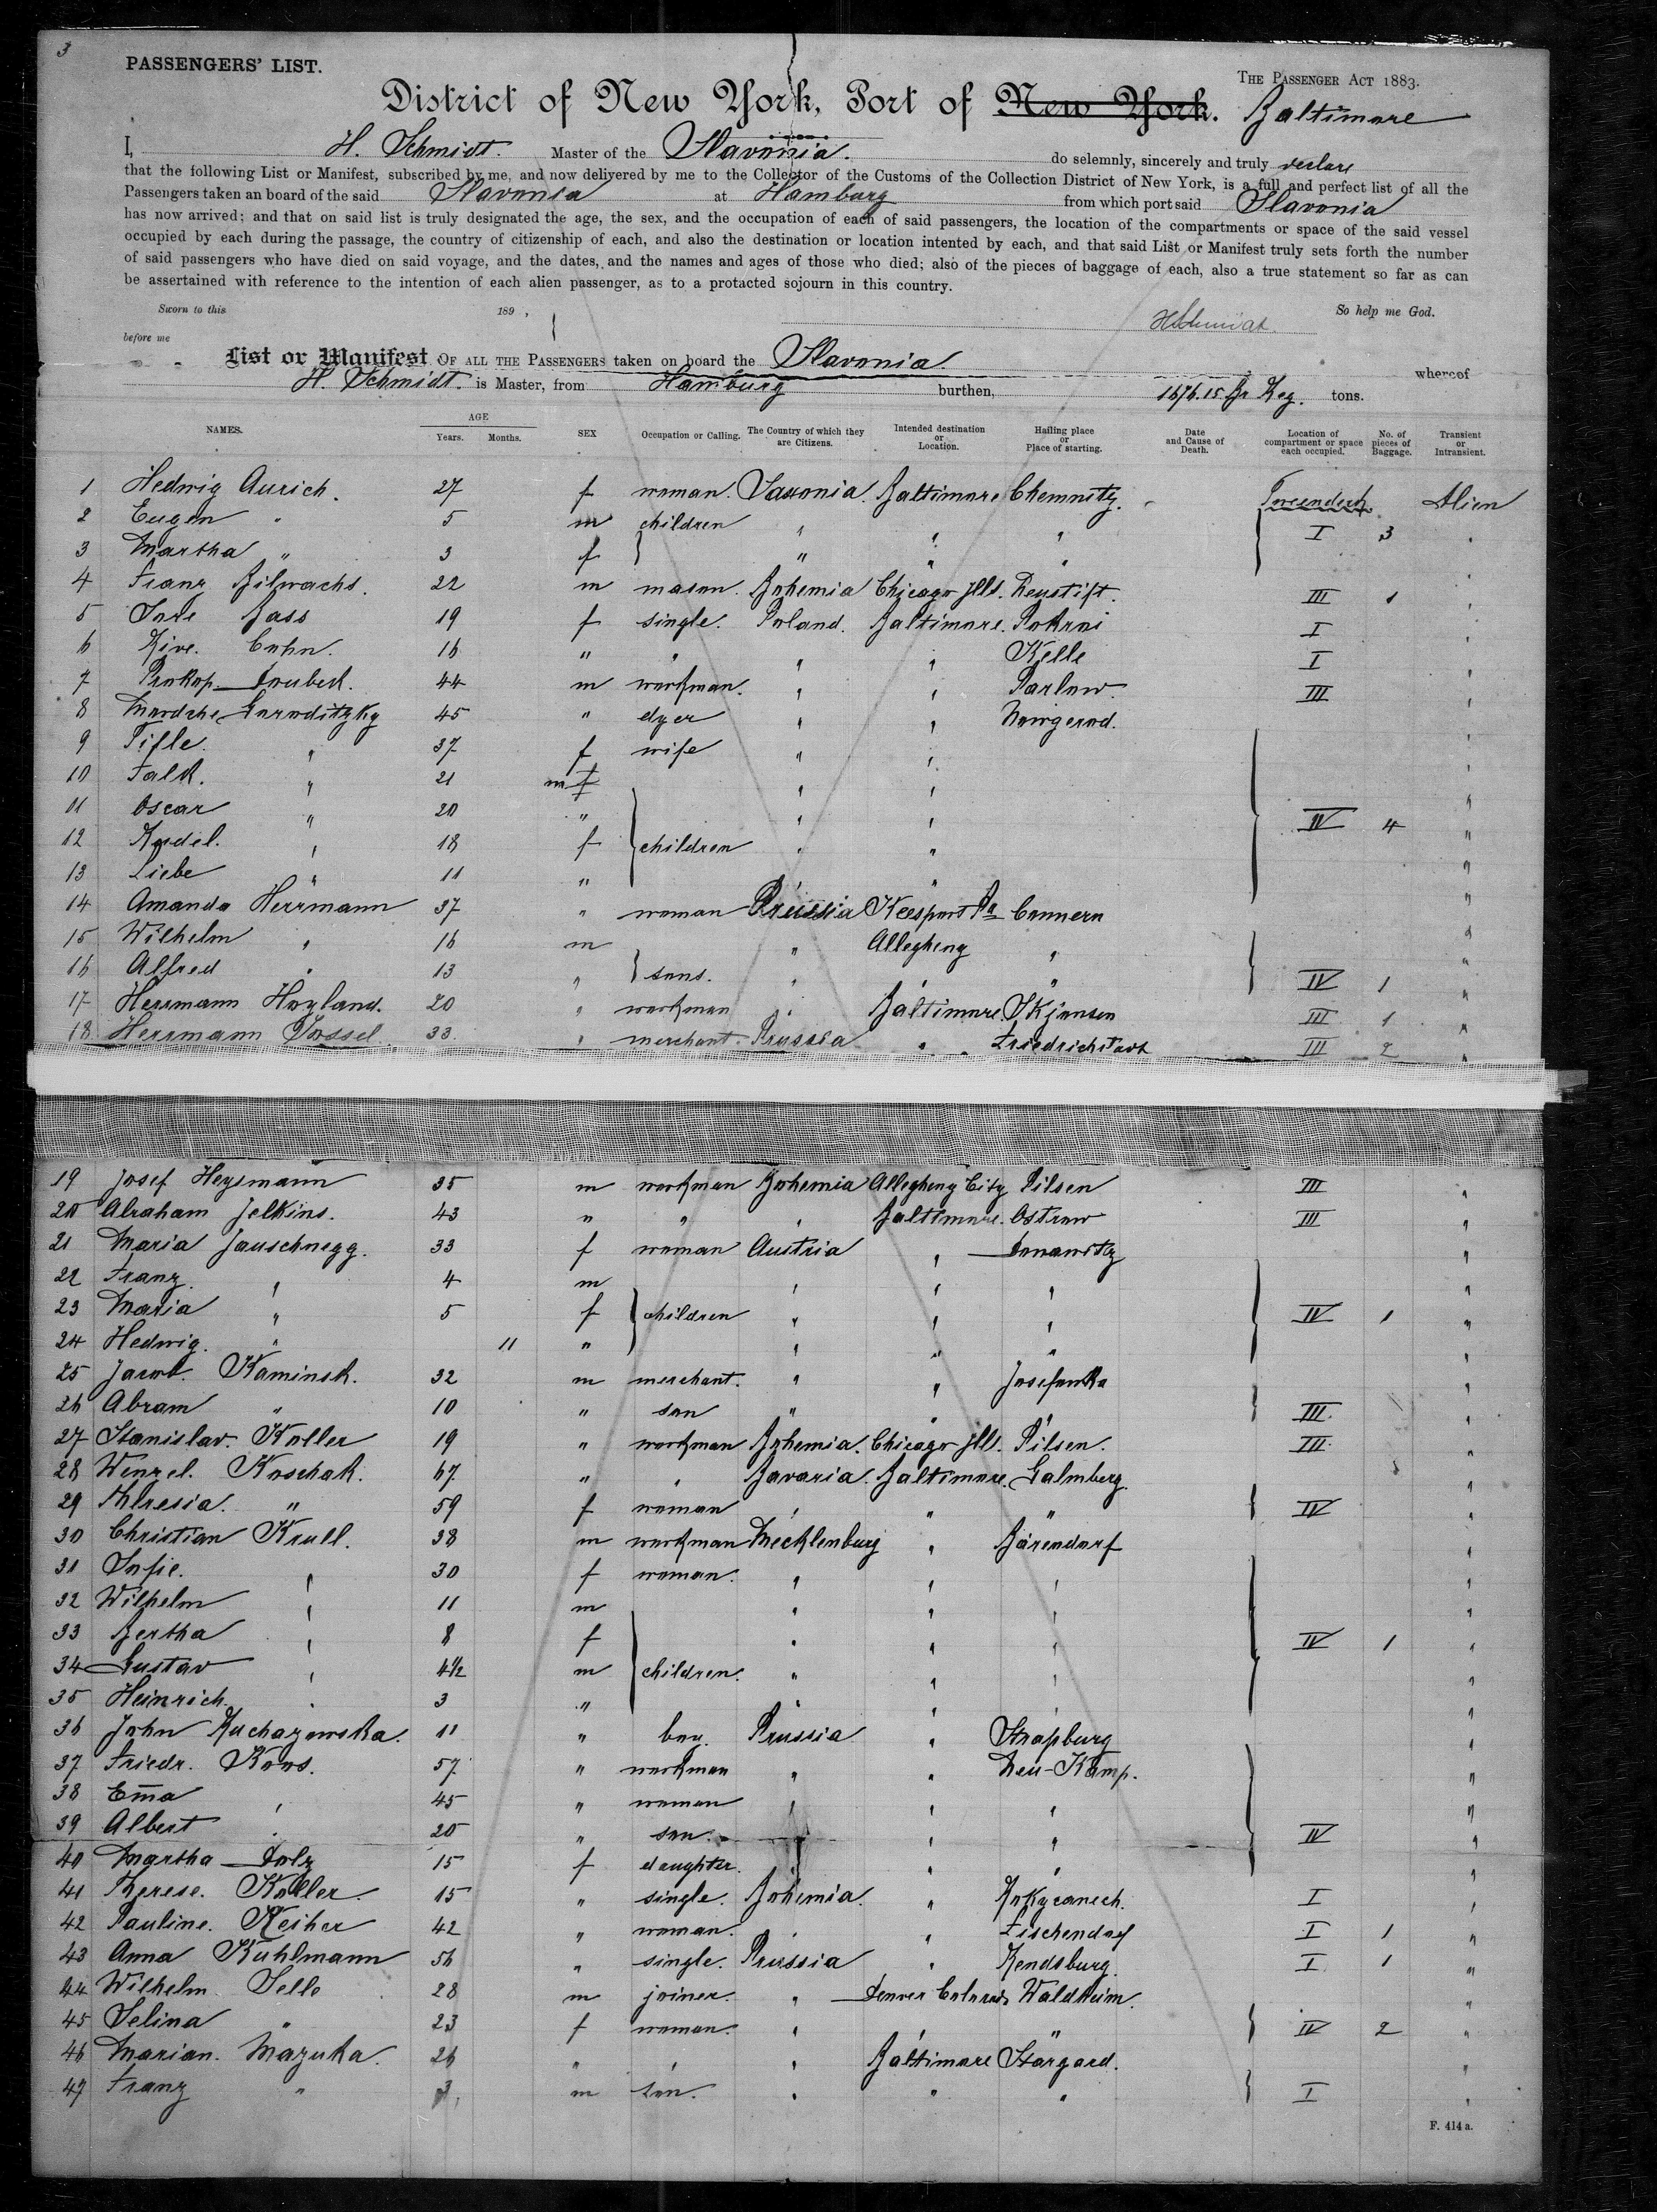 3
PASSENGERS' LIST.
THE PASSENGER ACT 1883.
District of New York, Port of New York. Baltimore
I, H. Schmidt. Master of the Slavonia. do selemnly, sincerely and truly declare
that the following List or Manifest, subscribed by me, and now deliyered by me to the Collector of the Customs of the Collection District of New York, is a full and perfect list of all the
Passengers taken an board of the said Slavonia at Hamburg from which port said Slavonia
has now arrived; and that on said list is truly designated the age, the sex, and the occupation of each of said passengers, the location of the compartments or space of the said vessel
occupied by each during the passage, the country of citizenship of each, and also the destination or location intented by each, and that said List or Manifest truly sets forth the number
of said passengers who have died on said voyage, and the dates, and the names and ages of those who died; also of the pieces of baggage of each, also a true statement so far as can
be assertained with reference to the intention of each alien passenger, as to a protacted sojourn in this country.
Sworn to this 189 , HSchmidt. So help me God.
before me
List or Manifest OF ALL THE PASSENGERS taken on board the Slavonia. whereof
H. Schmidt. is Master, from Hamburg burthen, 1676.15 Br Reg. tons.
NAMES. AGE Years. Months. SEX Occupation or Calling. The Country of which they are Citizens. Intended destination or Location. Hailing place or Place of starting. Date and Cause of Death. Location of compartment or space each occupied. No. of pieces of Baggage. Transient or Intransient.
1 Hedwig Aurich. 27 f woman. Saxonia. Baltimore Chemnitz. Tweendeck Alien
2 Eugen " 5 m children " " " I 3 "
3 Martha " 3 f " " " "
4 Franz Bilwachs. 22 m mason. Bohemia Chicago Ills. Neustift. III 1 "
5 Sore Bass 19 f single. Poland. Baltimore. Pokroi I "
6 Rive. Cohn. 16 " " " " Kelle I "
7 Prokop Doubek. 44 m workman. " " Parlow. III "
8 Mordche Goroditzky 45 " dyer " " Nowgorod. "
9 Tifle. " 37 f wife " " "
10 Falk. " 21 m f " " "
11 Oscar " 20 " " " IV 4 "
12 Rodel. " 18 f children " " "
13 Liebe " 11 " " " "
14 Amanda Herrmann 37 " woman Prussia Keesport Pa Connern "
15 Wilhelm " 16 m " Allegheny " "
16 Alfred " 13 " sons. " " " IV 1 "
17 Herrmann Hoyland. 20 " workman " Baltimore. Skjonsen III 1 "
18 Herrmann Jossel. 33. " merchant. Prussia " Friedrichstadt III 2 "
19 Josef Heysmann 35 m workman Bohemia Allegheny City Pilsen III "
20 Abraham Jelkins. 43 " " " Baltimore. Ostrow III "
21 Maria Jauschnegg. 33 f woman Austria " Donawitz "
22 Franz. " 4 m " " " "
23 Maria " 5 f children " " " IV 1 "
24 Hedwig. " 11 " " " " "
25 Jacob. Kaminsk. 32 m merchant. " " Josefowka "
26 Abram " 10 " son " " " III "
27 Stanislav. Koller 19 " workman Bohemia. Chicago Ills. Pilsen. III "
28 Wenzel. Koschak. 67 " " Bavaria. Baltimore. Galmberg. "
29 Theresia. " 59 f woman " " " IV "
30 Christian Krull. 38 m workman Mecklenburg " Bärendorf "
31 Sofie. " 30 f woman. " " " "
32 Wilhelm " 11 m " " " "
33 Bertha " 8 f " " " IV 1 "
34 Gustav " 4½ m children. " " " "
35 Heinrich. " 3 " " " " "
36 John Kuchazowska. 11 " boy. Prussia " Straßburg "
37 Friedr. Koos. 57 " workman " " Neu-Kamp. "
38 Em̄a " 45 " woman " " " "
39 Albert " 20 " son. " " " IV "
40 Martha Dolz 15 f daughter. " " "
41 Therese. Koller. 15 " single. Bohemia. " Rokycanech. I "
42 Pauline. Keiher 42 " woman. " " Fischendorf I 1 "
43 Anna Kuhlmann 56 " single. Prussia " Rendsburg. I 1 "
44 Wilhelm. Selle 28 m joiner. " Denver Colorado Waldheim. "
45 Selina " 23 f woman. " " " IV 2 "
46 Marian. Mazuka. 26 " " " Baltimore Stargard. "
47 Franz " 3 m son. " " " I "
F. 414 a.